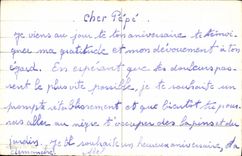 Cher Pépé.
Je viens au jour de ton anniversaire te témoi
gner ma gratitude et mon dévouement à ton
égard. En espérant que tes douleurs pas-
seront le plus vite possible, je te souhaite un
prompt rétablissement et que bientôt tu pour-
ras aller au t'occuper des lapins et du
jardin. Je te souhaite un heureux anniversaire, ta